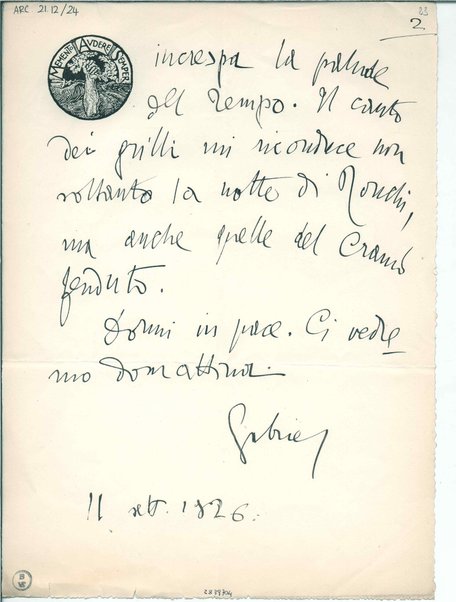 ARC. 21.12/24
23
2
MEMENTO AUDERE SEMPER
increspa la palude
del Tempo. Il canto
dei grilli mi riconduce non
soltanto la notte di Ronchi,
ma anche quelle del Cranio
fenduto.
Dormi in pace. Ci vedre
mo domattina.
Gabriel
11 sett. 1926.